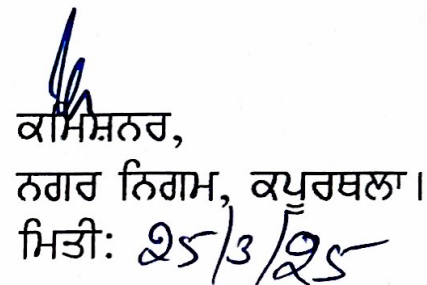 ਕਮਿਸ਼ਨਰ,
ਨਗਰ ਨਿਗਮ, ਕਪੂਰਥਲਾ।
ਮਿਤੀ: 25/3/25